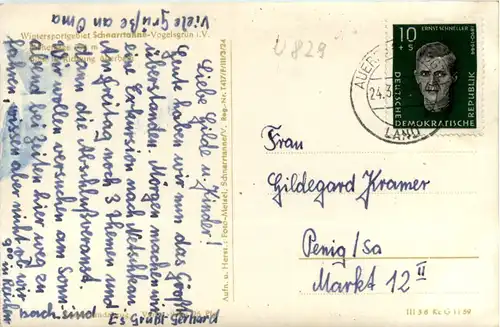 Viele Grüße an Oma
Wintersportgebiet Schnarrtanne-Vogelsgrün i. V.
Liebe Gilde u. Kinder!
Heute haben wir nun das Größte
überstanden. Morgen machen wir
eine Exkursion nach Netzschkau
Freitag noch 3 Themen und
dann die Abschlußveranst.
wir wollen versuchen am Sonn-
abend bei Zeiten hier weg zu
wissen aber nicht ob wir
900 in
hoch sind
Es grüßt Gerhard
Aufn. u. Herst.: Foto-Meisel, Schnarrtanne/V.
W 829
10
+5
ERNST SCHNELLER
1890-1944
DEUTSCHE
DEMOKRATISCHE REPUBLIK
AUER
24.3
LAND
Frau
Hildegard Kramer
Penig/Sa
Markt 12 II
III 5 6 Kc G 11 59